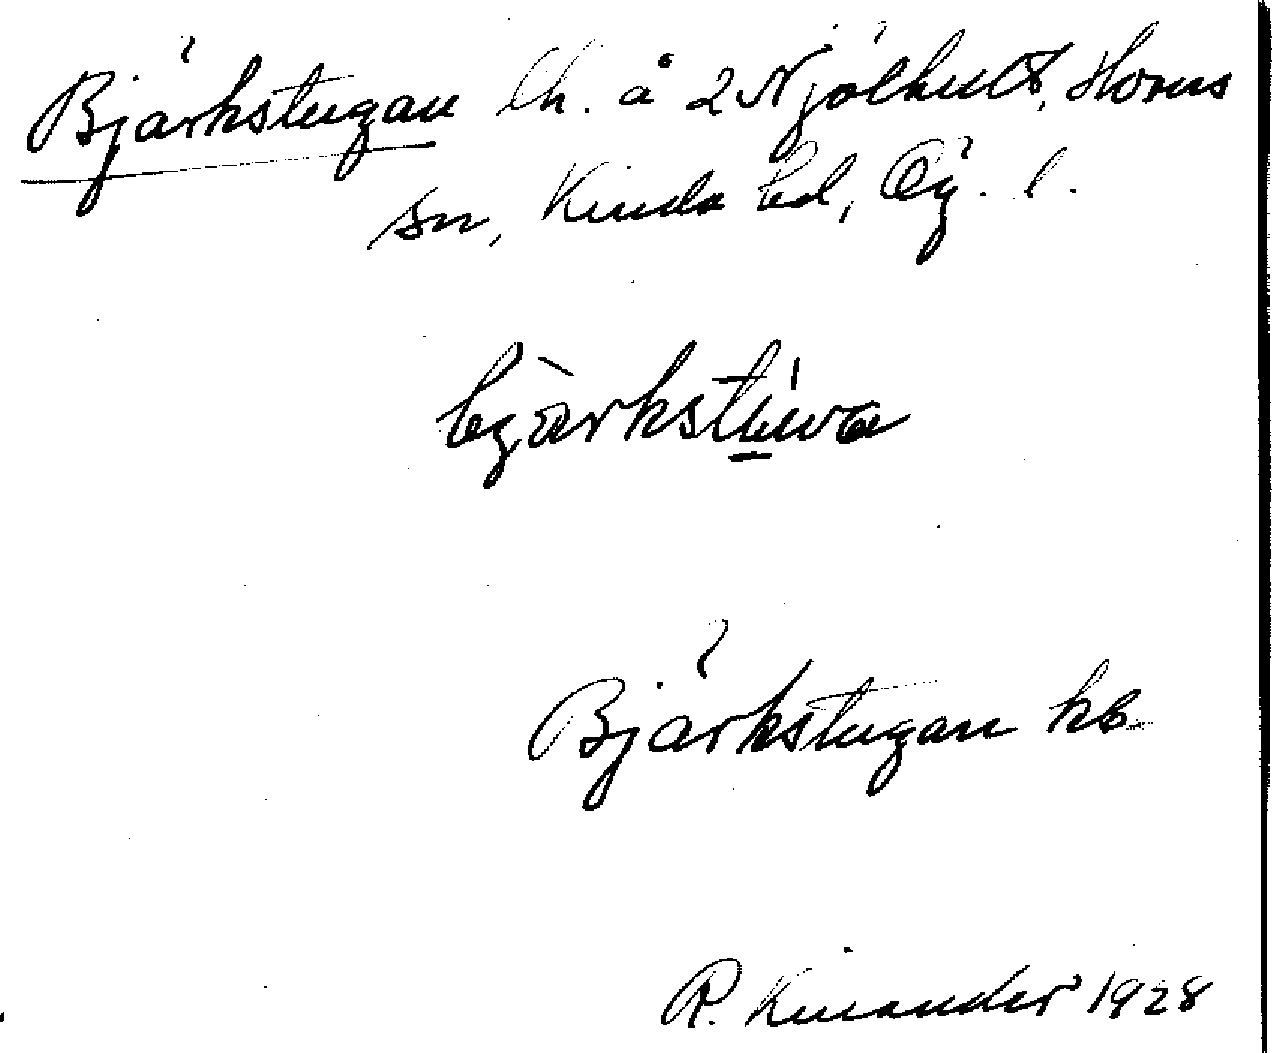 Björkstugan lh. å 2 Njölhult, Horns
sn, Kinda hd, Ög. l.
bjärkstuwa
Björkstugan kb
R. Kinander 1928